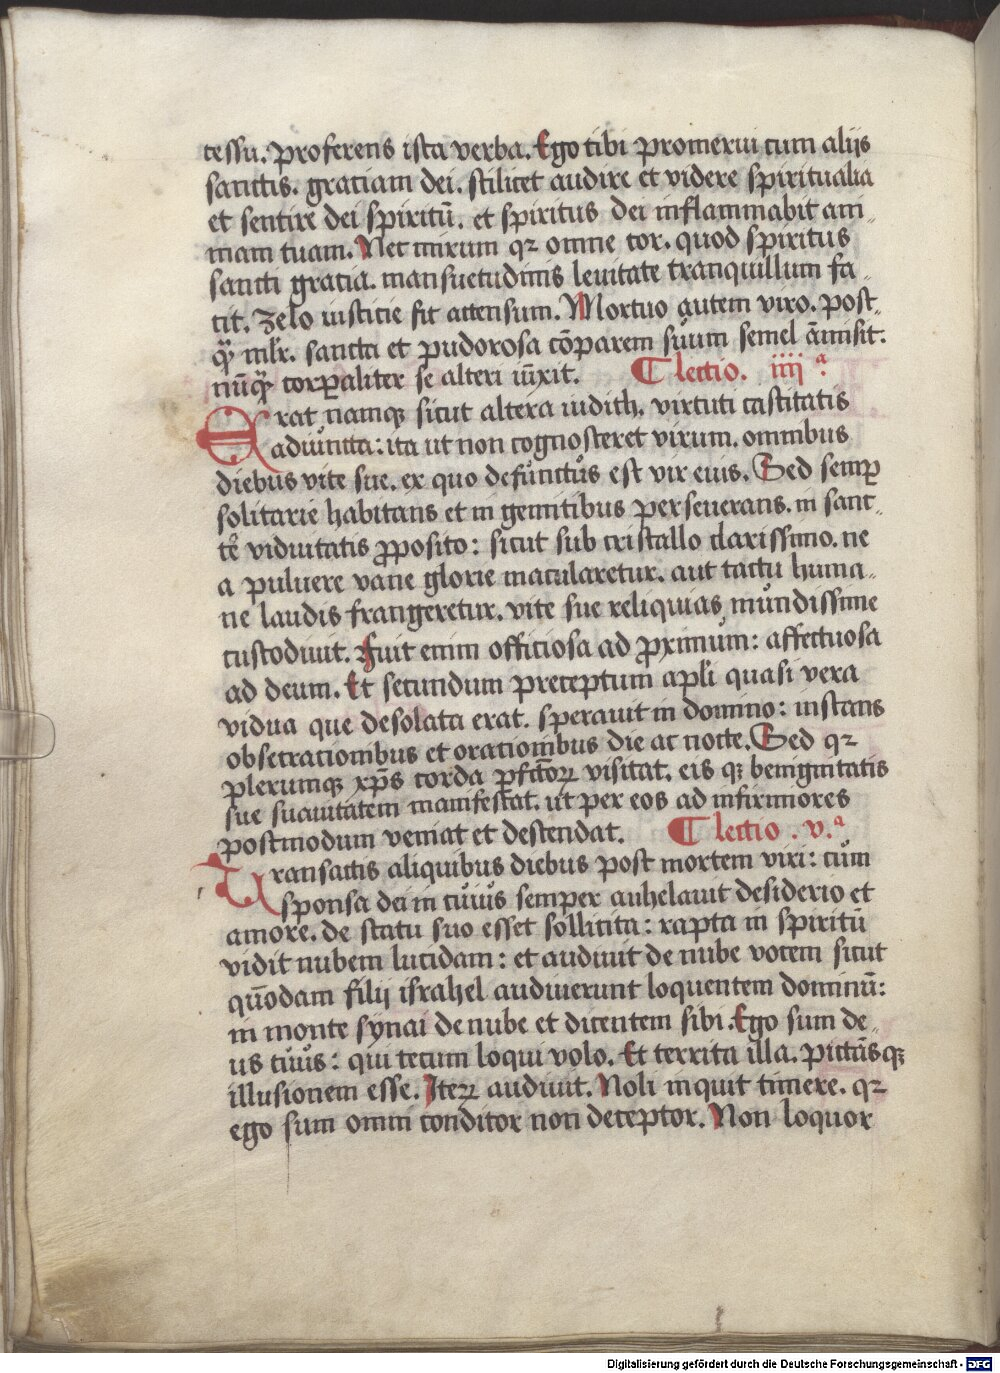 cessu. proferens ista verba. Ego tibi promerui cum alijs
sanctis. graciam dei. scilicet audire et videre spiritualia
et sentire dei spiritū. et spiritus dei inflammabit ani-
mam tuam. Nec mirum qꝛ omne cor. quod spiritus
sancti gratia. mansuetudinis leuitate tranquillum fa-
cit. zelo iusticie fit accensum. Mortuo autem viro. post-
qᷓ mlr̄. sancta et pudorosa cōparem suum semel āmisit.
nūqᷓ corꝑaliter se alteri iūxit. lectio. iiijᵃ.
Erat namqꝫ sicut altera iudith. virtuti castitatis
adiuncta: ita ut non cognosceret virum. omnibus
diebus vite sue. ex quo defunctus est vir eius. Sed semꝑ
solitarie habitans et in gemitibus perseuerans. in sanc-
te viduitatis ꝓposito: sicut sub cristallo clarissimo. ne
a puluere vane glorie macularetur. aut tactu huma-
ne laudis frangeretur. vite sue reliquias mundissime
custodiuit. Fuit enim officiosa ad ꝓximum: affectuosa
ad deum. Et secundum preceptum apli quasi vera
vidua que desolata erat. sperauit in domino: instans
obsecrationibus et orationibus die ac nocte. Sed qꝛ
plerumqꝫ xp̄s corda ꝑfctoꝝ visitat. eis qꝫ benignitatis
sue suauitatem manifestat. ut per eos ad infirmiores
postmodum veniat et descendat. lectio . v.ᵃ
Transactis aliquibus diebus post mortem viri: cum
sponsa dei in cuius semper anhelauit desiderio et
amore. de statu suo esset sollicita: rapta in spiritū
vidit nubem lucidam: et audiuit de nube vocem sicut
quōdam filij israhel audiuerunt loquentem dominū:
in monte synai de nube et dicentem sibi. Ego sum de-
us tuus: qui tecum loqui volo. Et territa illa. pictāsqꝫ
illusionem esse. Iteꝝ audiuit. Noli inquit timere. qꝛ
ego sum omni conditor non deceptor. Non loquor
Digitalisierung gefördert durch die Deutsche Forschungsgemeinschaft - DFG